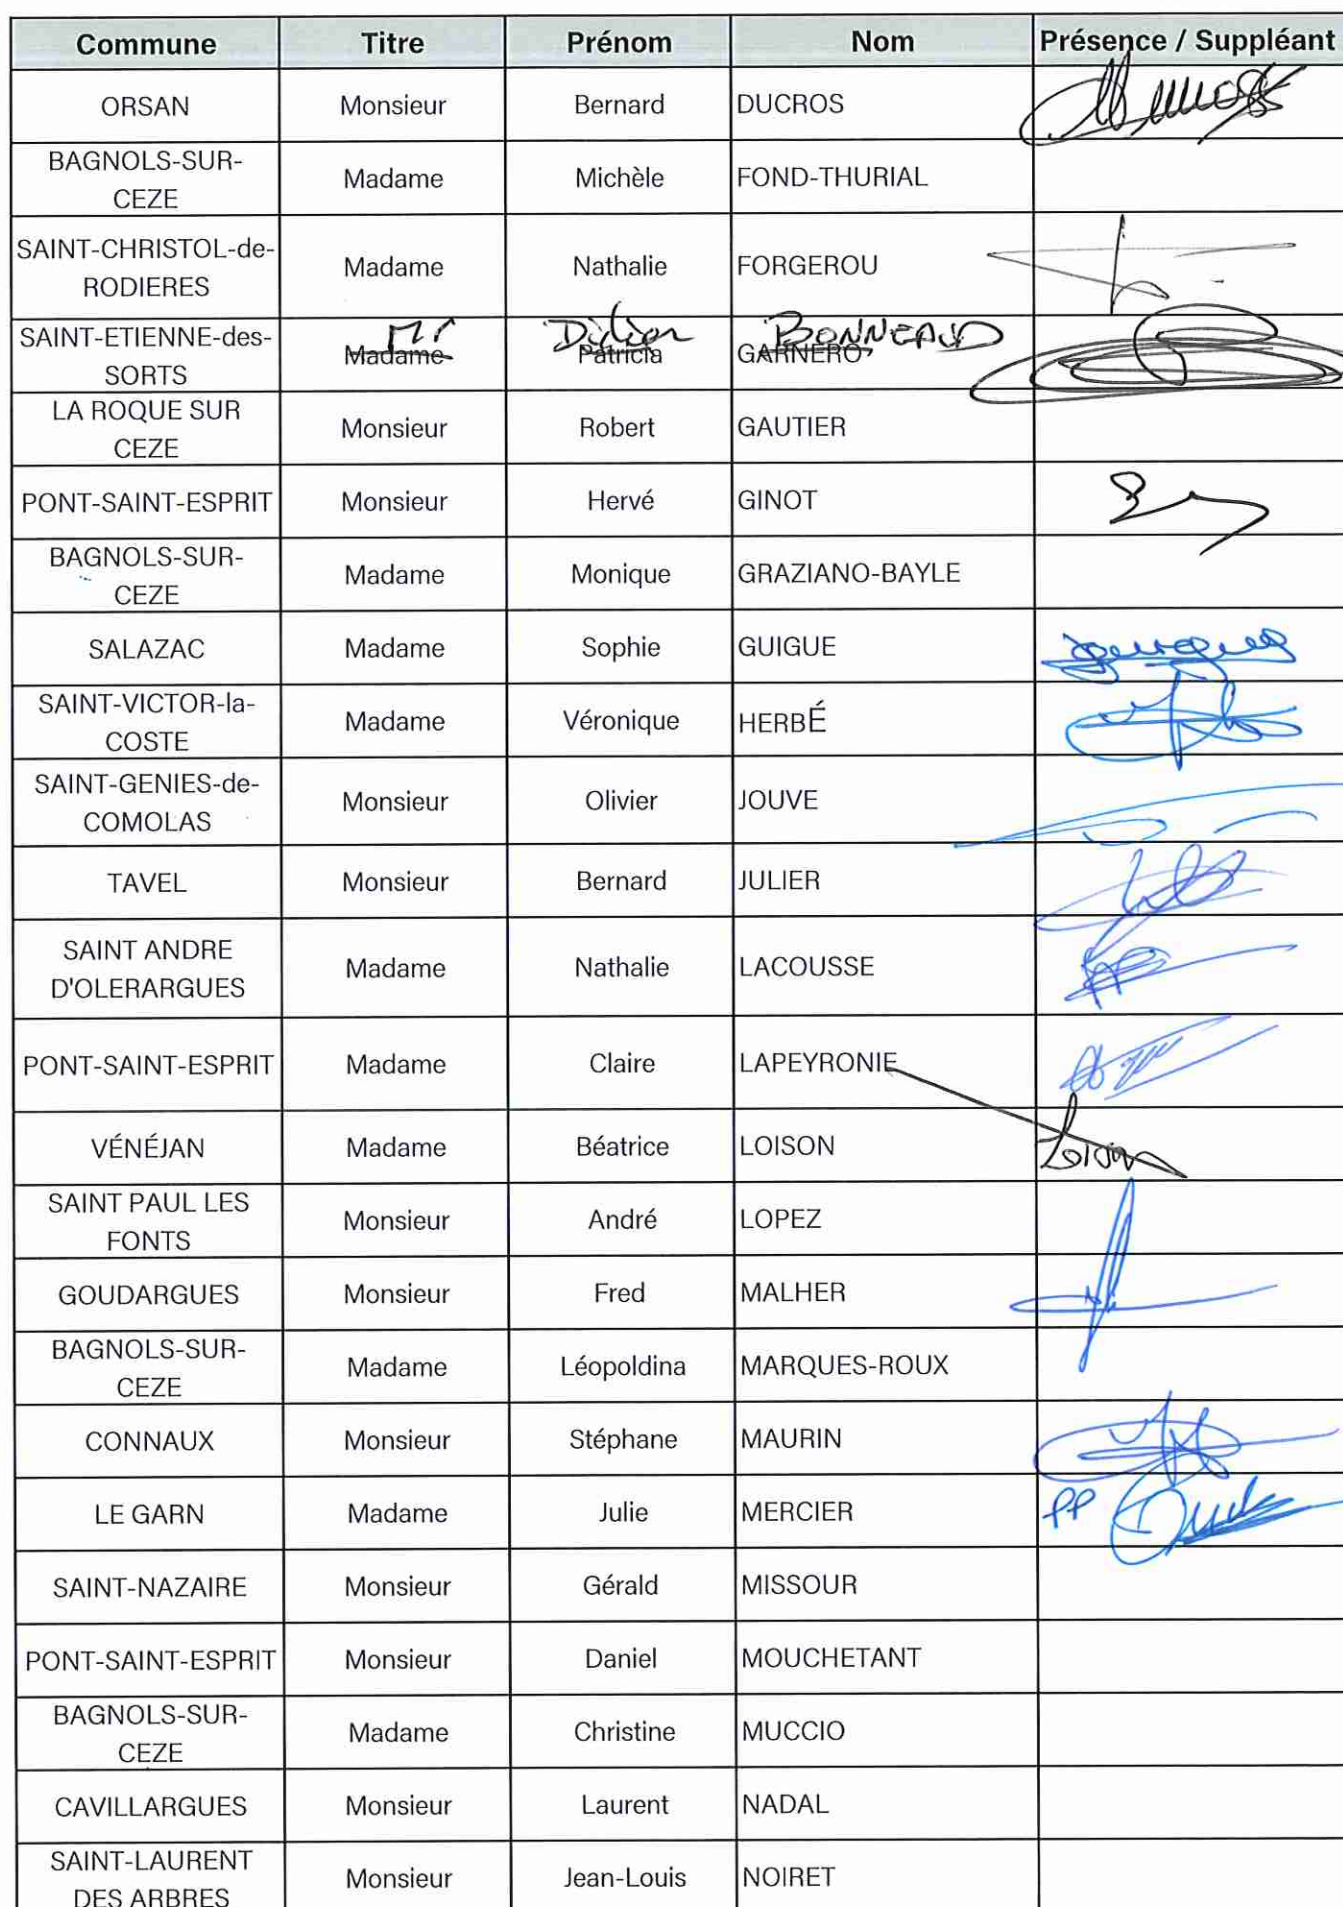 Commune Titre Prénom Nom Présence / Suppléant
ORSAN Monsieur Bernard DUCROS
BAGNOLS-SUR-
CEZE Madame Michèle FOND-THURIAL
SAINT-CHRISTOL-de-
RODIERES Madame Nathalie FORGEROU
Mr Didier BONNEAUD
SAINT-ETIENNE-des-
SORTS Madame Patricia GARNERO
LA ROQUE SUR
CEZE Monsieur Robert GAUTIER
PONT-SAINT-ESPRIT Monsieur Hervé GINOT
BAGNOLS-SUR-
CEZE Madame Monique GRAZIANO-BAYLE
SALAZAC Madame Sophie GUIGUE
SAINT-VICTOR-la-
COSTE Madame Véronique HERBÉ
SAINT-GENIES-de-
COMOLAS Monsieur Olivier JOUVE
TAVEL Monsieur Bernard JULIER
SAINT ANDRE
D'OLERARGUES Madame Nathalie LACOUSSE
PONT-SAINT-ESPRIT Madame Claire LAPEYRONIE
VÉNÉJAN Madame Béatrice LOISON Loison
SAINT PAUL LES
FONTS Monsieur André LOPEZ
GOUDARGUES Monsieur Fred MALHER
BAGNOLS-SUR-
CEZE Madame Léopoldina MARQUES-ROUX
CONNAUX Monsieur Stéphane MAURIN
LE GARN Madame Julie MERCIER PP
SAINT-NAZAIRE Monsieur Gérald MISSOUR
PONT-SAINT-ESPRIT Monsieur Daniel MOUCHETANT
BAGNOLS-SUR-
CEZE Madame Christine MUCCIO
CAVILLARGUES Monsieur Laurent NADAL
SAINT-LAURENT
DES ARBRES Monsieur Jean-Louis NOIRET